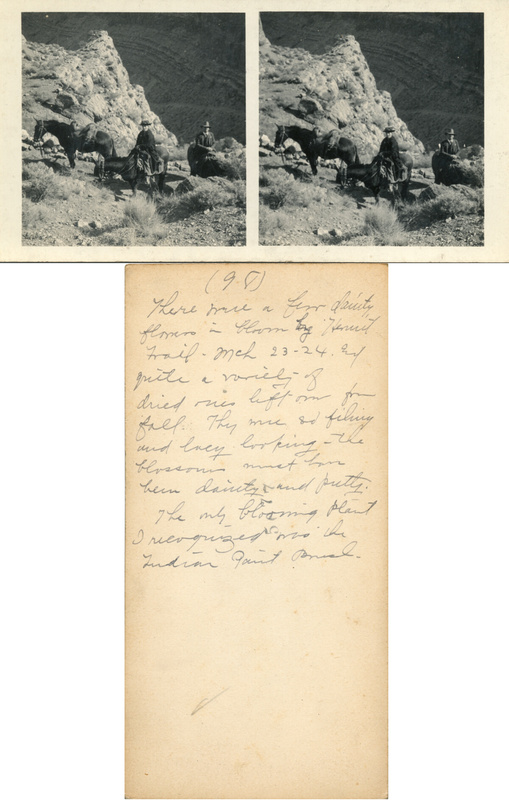 (9-8)
There were a few dainty
flowers in bloom by Hermit
Trail - Mch 23-24. and
quite a variety of
dried ones left over from
fall. They were so filmy
and lacy looking - the
blossoms must have
been dainty and pretty.
The only blooming plant
I recognized was the
Indian Paint Brush.